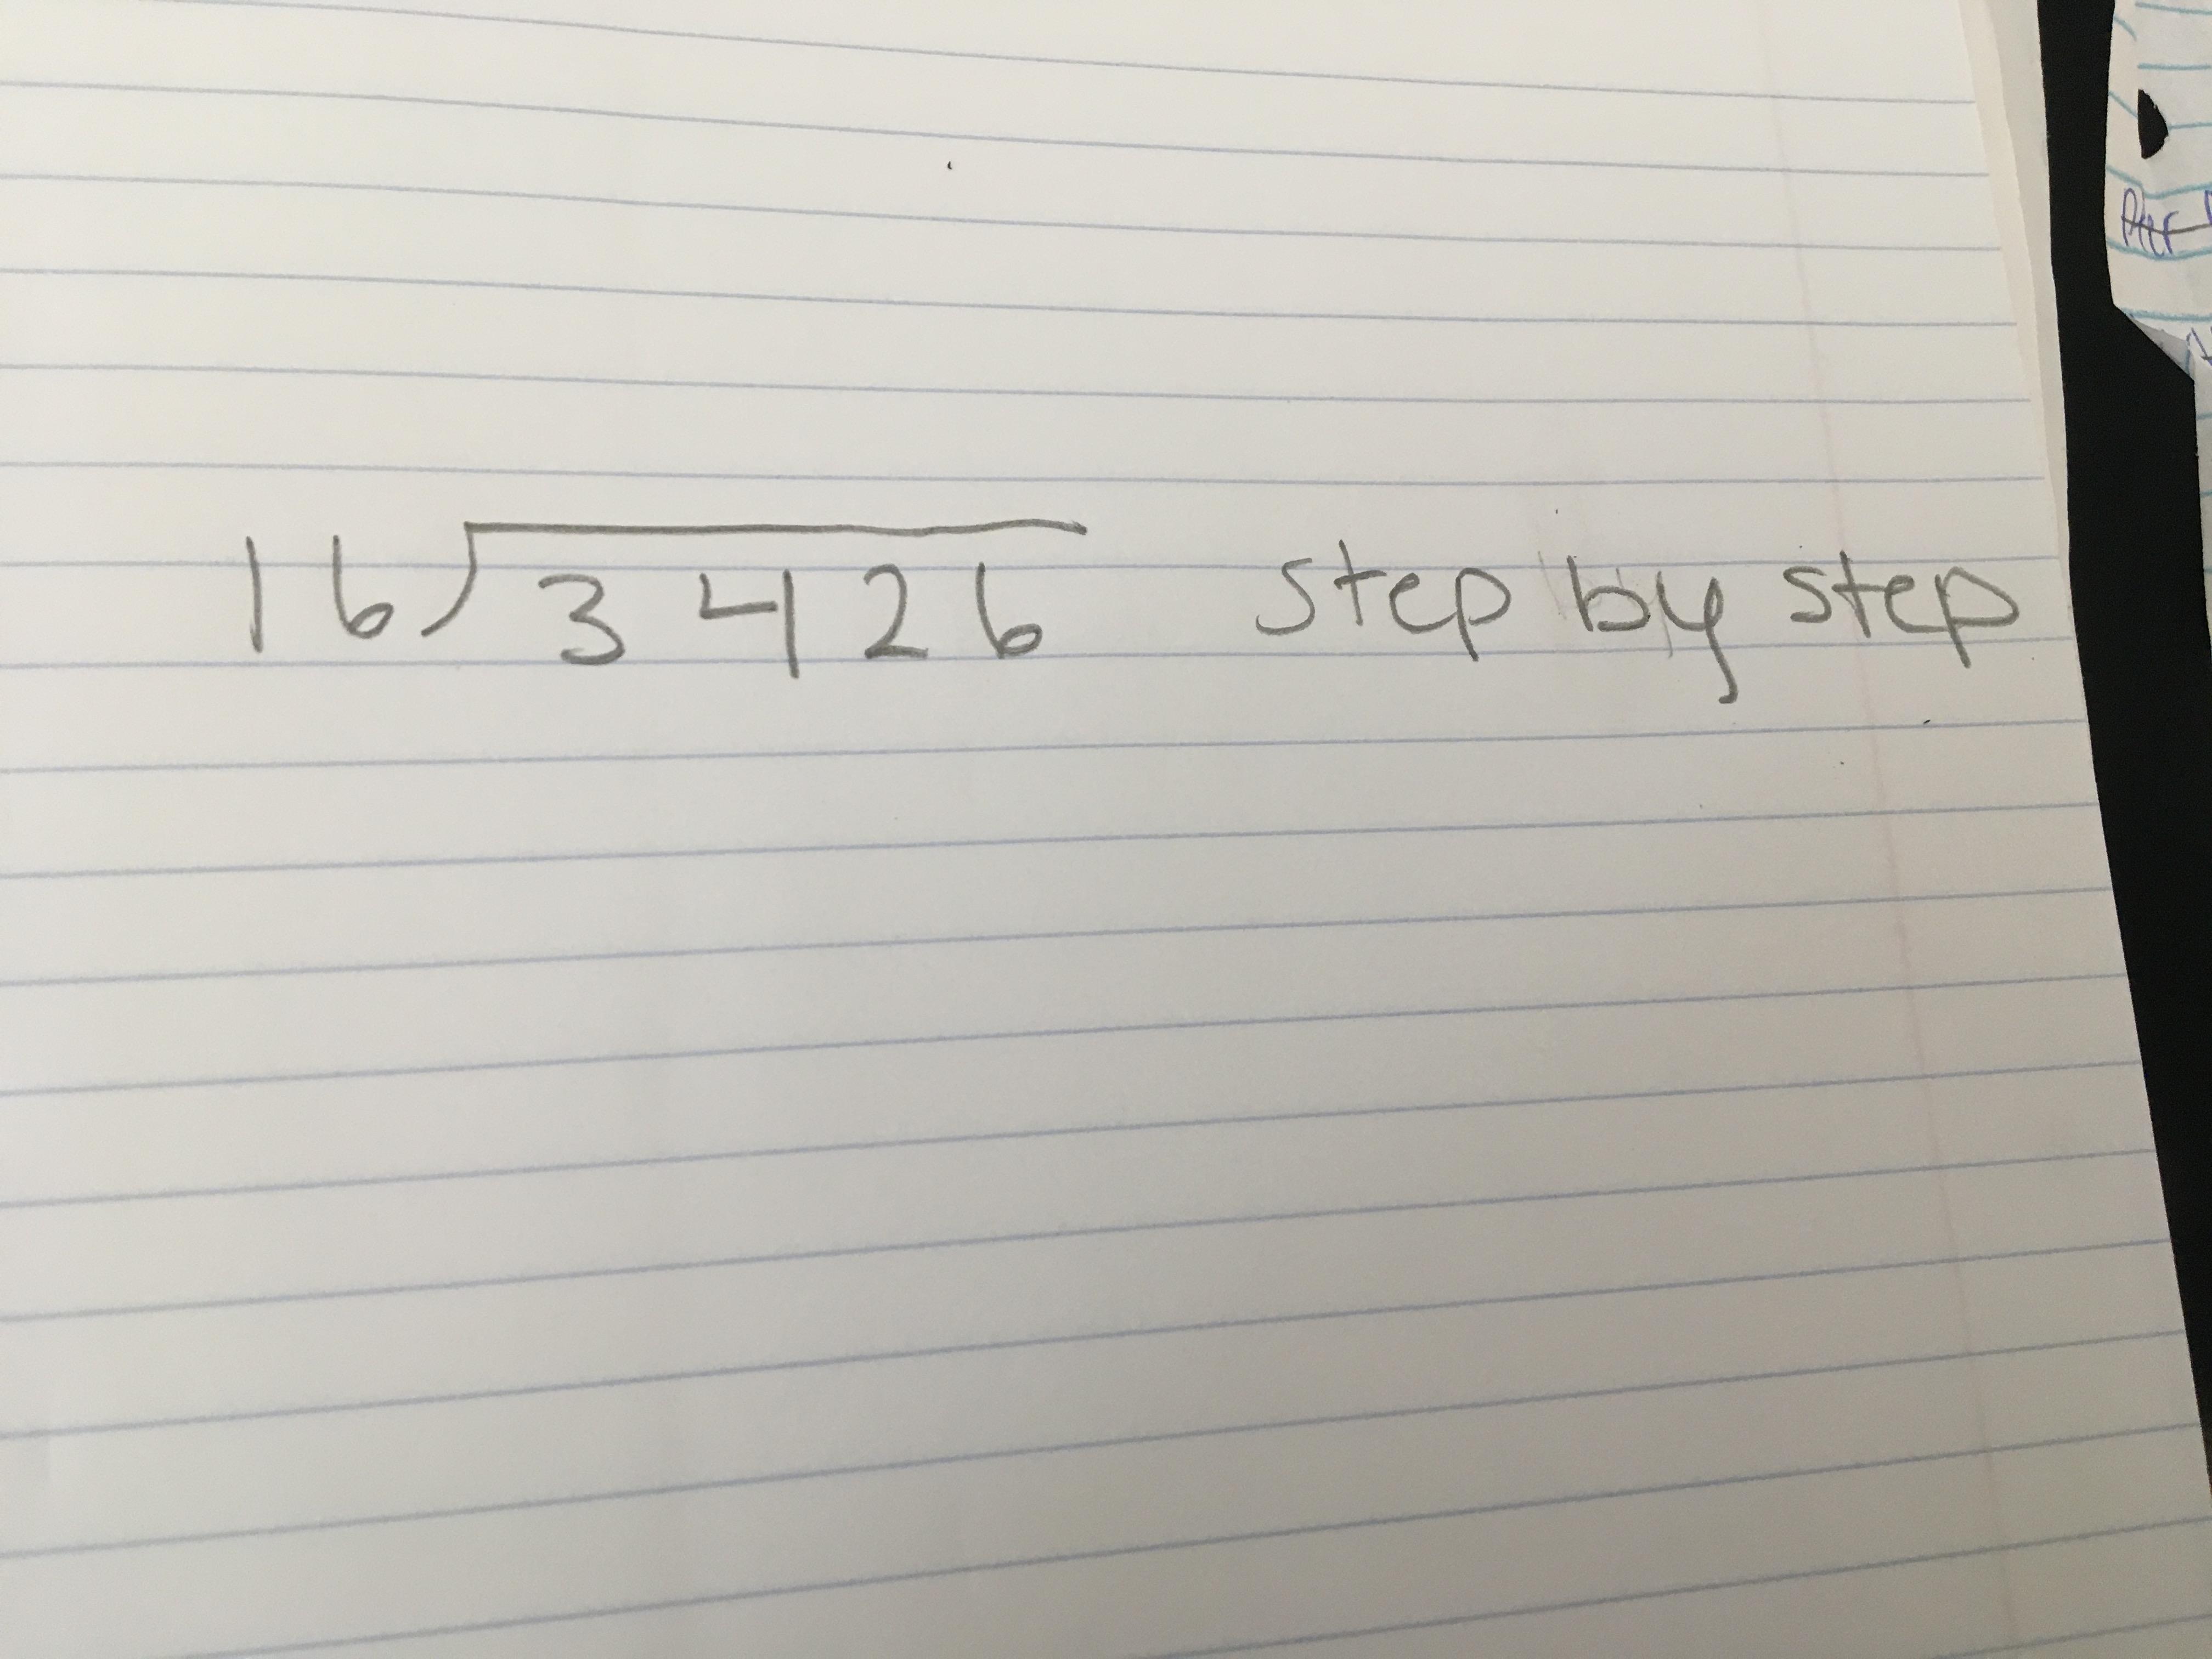 16)3426 step by step